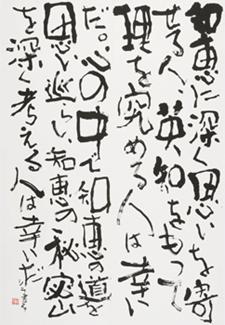 知恵に深く思いを寄
せる人、英知をもって
理を究める人は幸い
だ。心の中で知恵の道を
思い巡らし、知恵の秘密
を深く考える人は幸いだ